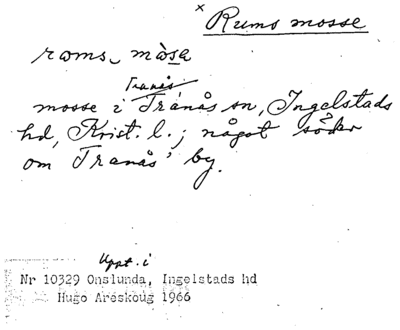 x Rums mosse
rams måsa
Tranås
mosse i Tranås sn, Ingelstads
hd, Krist. l.; något söder
om Tranås' by.
Uppt. i
Nr 10329 Onslunda, Ingelstads hd
Hugo Areskoug 1966